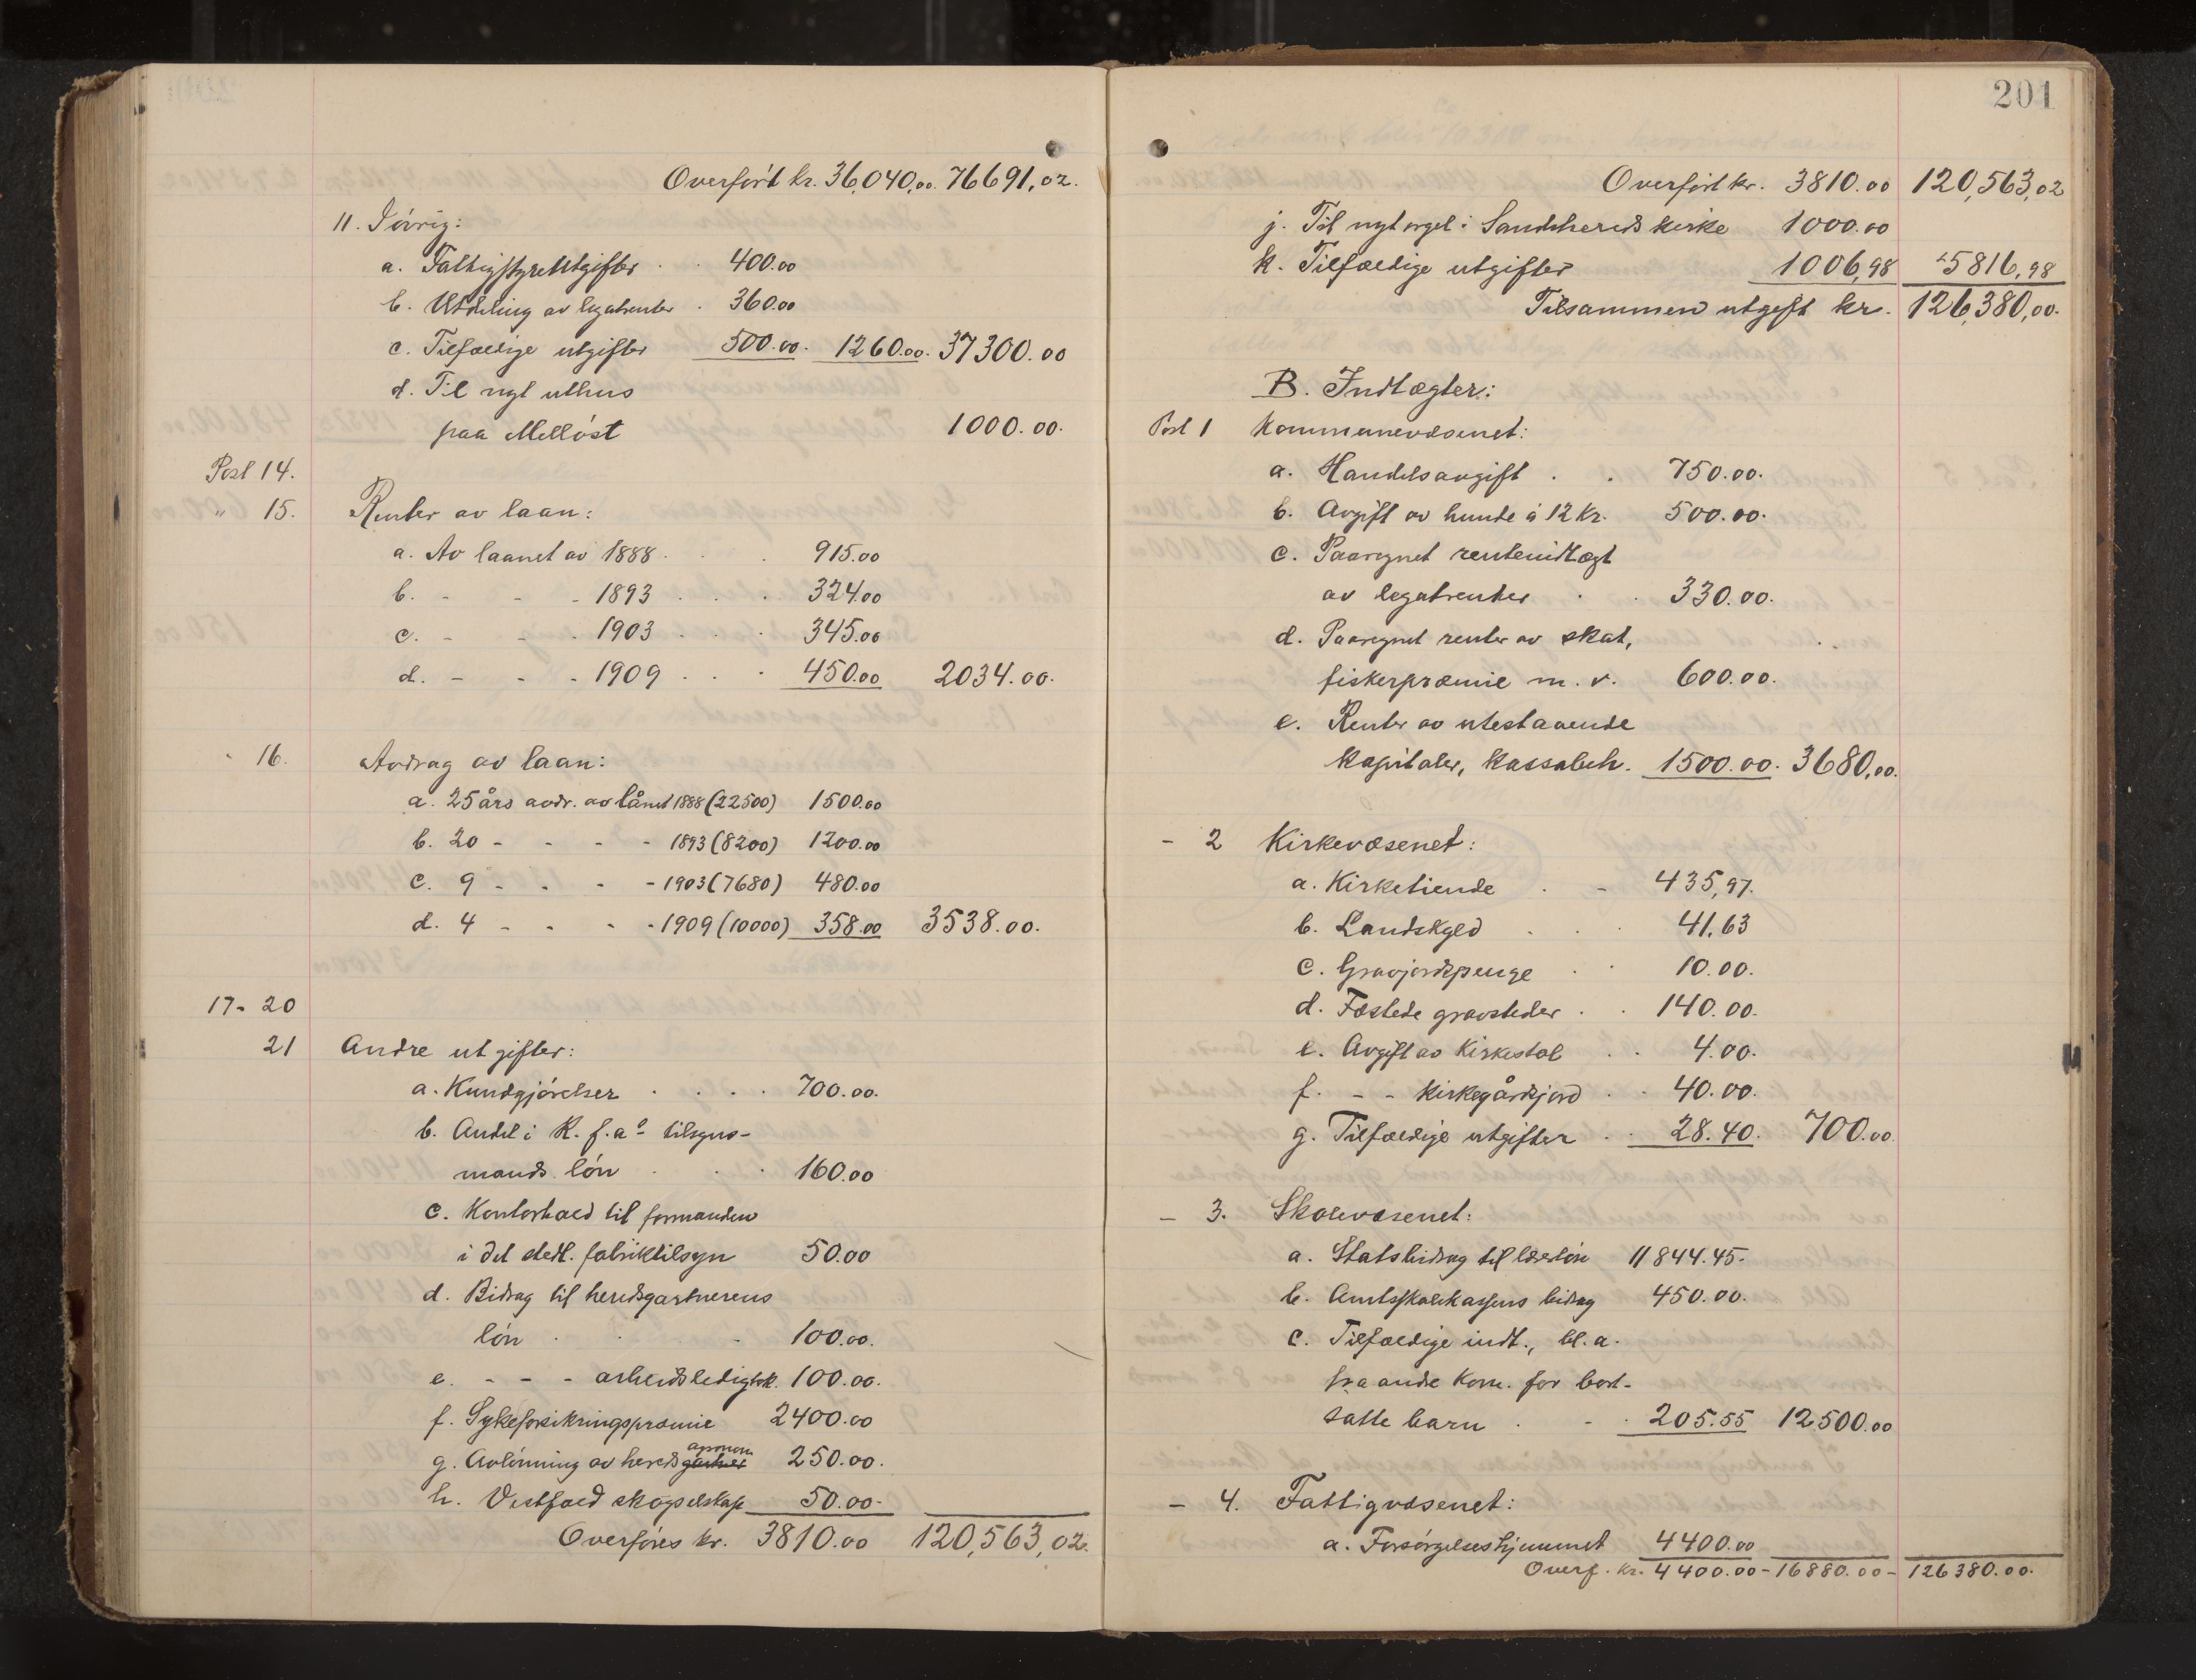 Overført kr. 36,040,00. 76691,02.
11. Iøvrig:
a. Fattigstyreutgifter . . 400.00
b. Utdeling av legatrenter . 360.00
c. Tilfældige utgifter 500.00. 1260.00. 37300.00
d. Til nyt uthus
paa Melløst 1000.00.
Post 14.
" 15. Renter av laan:
a. Av laanet av 1888 . . . 915.00
b. - - - 1893 . . . 324.00
c. - - - 1903 . . . 345.00
d. - - - 1909 . . . 450.00 2034.00.
" 16. Avdrag av laan:
a. 25 års avdr. av lånet 1888 (22500) 1500.00
b. 20 - - - - 1893 (8200) 1200.00
c. 9 - - - - 1903 (7680) 480.00
d. 4 - - - - 1909 (10000) 358.00 3538.00.
17-20
21 Andre utgifter:
a. Kundgjørelser . . . . 700.00.
b. Andel i K. f. a's tilsyns-
mands løn . . . 160.00
c. Kontorhold til formanden
i det stedl. fabriktilsyn 50.00
d. Bidrag til heredsgartnerens
løn . . . 100.00.
e. - - - arbeidsledigtsk. 100.00.
f. Sykeforsikringspræmie 2400.00
g. Avlønning av hereds gartner agronom 250.00.
h. Vestfold skogselskap 50.00-
Overføres kr. 3810.00 120,563,02.
201
Overført kr. 3810.00 120,563,02
j. Til nyt orgel i Sandeherreds kirke 1000.00
k. Tilfældige utgifter 1006,98 5816,98
Tilsammen utgift kr. 126,380,00.
B. Indtægter:
Post 1 Kommunevæsenet:
a. Handelsavgift . . 750.00.
b. Avgift av hunde á 12 kr. 500.00.
c. Paaregnet renteindtægt
av legatrenter . . 330.00.
d. Paaregnet renter av skat,
fiskerpræmie m. v. 600.00.
e. Renter av utestaaende
kapitaler, kassabeh. 1500.00. 3680,00.
- 2 Kirkevæsenet:
a. Kirketiende . - 435,97.
b. Landskyld . . . 41.63
c. Gravjordspenge . . 10.00.
d. Fæstede gravsteder . . 140.00.
e. Avgift av Kirkestol . . 4.00.
f. - - kirkegårdsjord . . 40.00.
g. Tilfældige utgifter . . 28.40. 700.00
- 3. Skolevæsenet:
a. Statsbidrag til lærerløn 11844.45.
b. Amtsskolekassens bidrag 450.00.
c. Tilfældige indt., bl. a.
fra andre Kom. for bort-
satte barn . - . 205.55 12500.00
- 4. Fattigvæsenet:
a. Forsørgelseshjemmet 4400.00
Overf. kr. 4400.00 - 16880.00 - 126380.00.